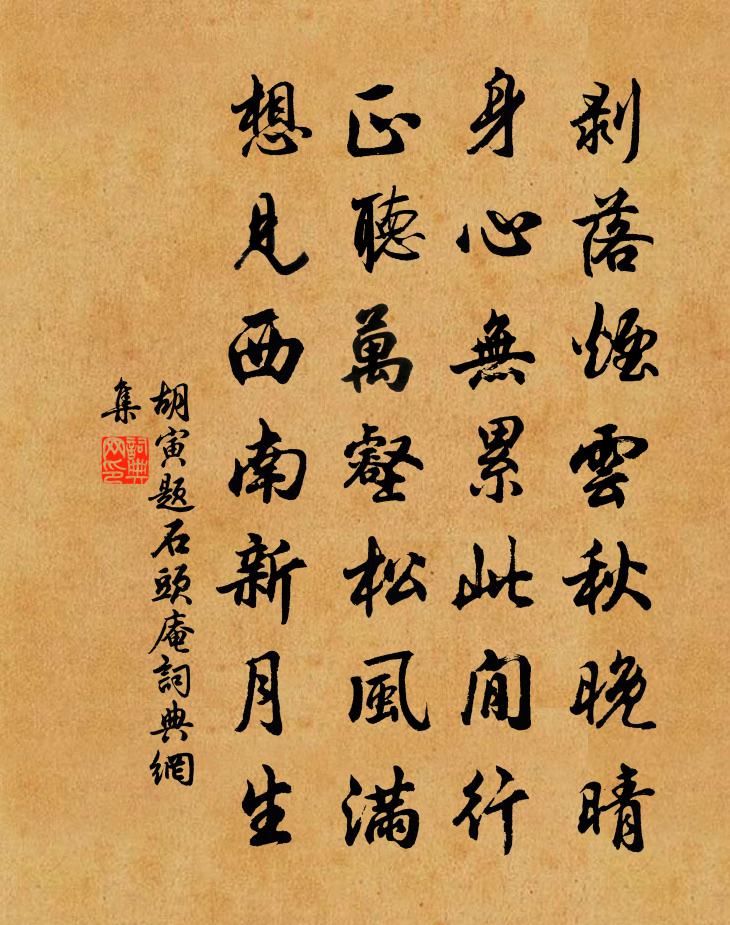 剥落煙雲秋晚晴
身心無累此閒行
正聽萬壑松風滿
想見西南新月生
胡寅題石頭庵詞典網
集
詞典
网印